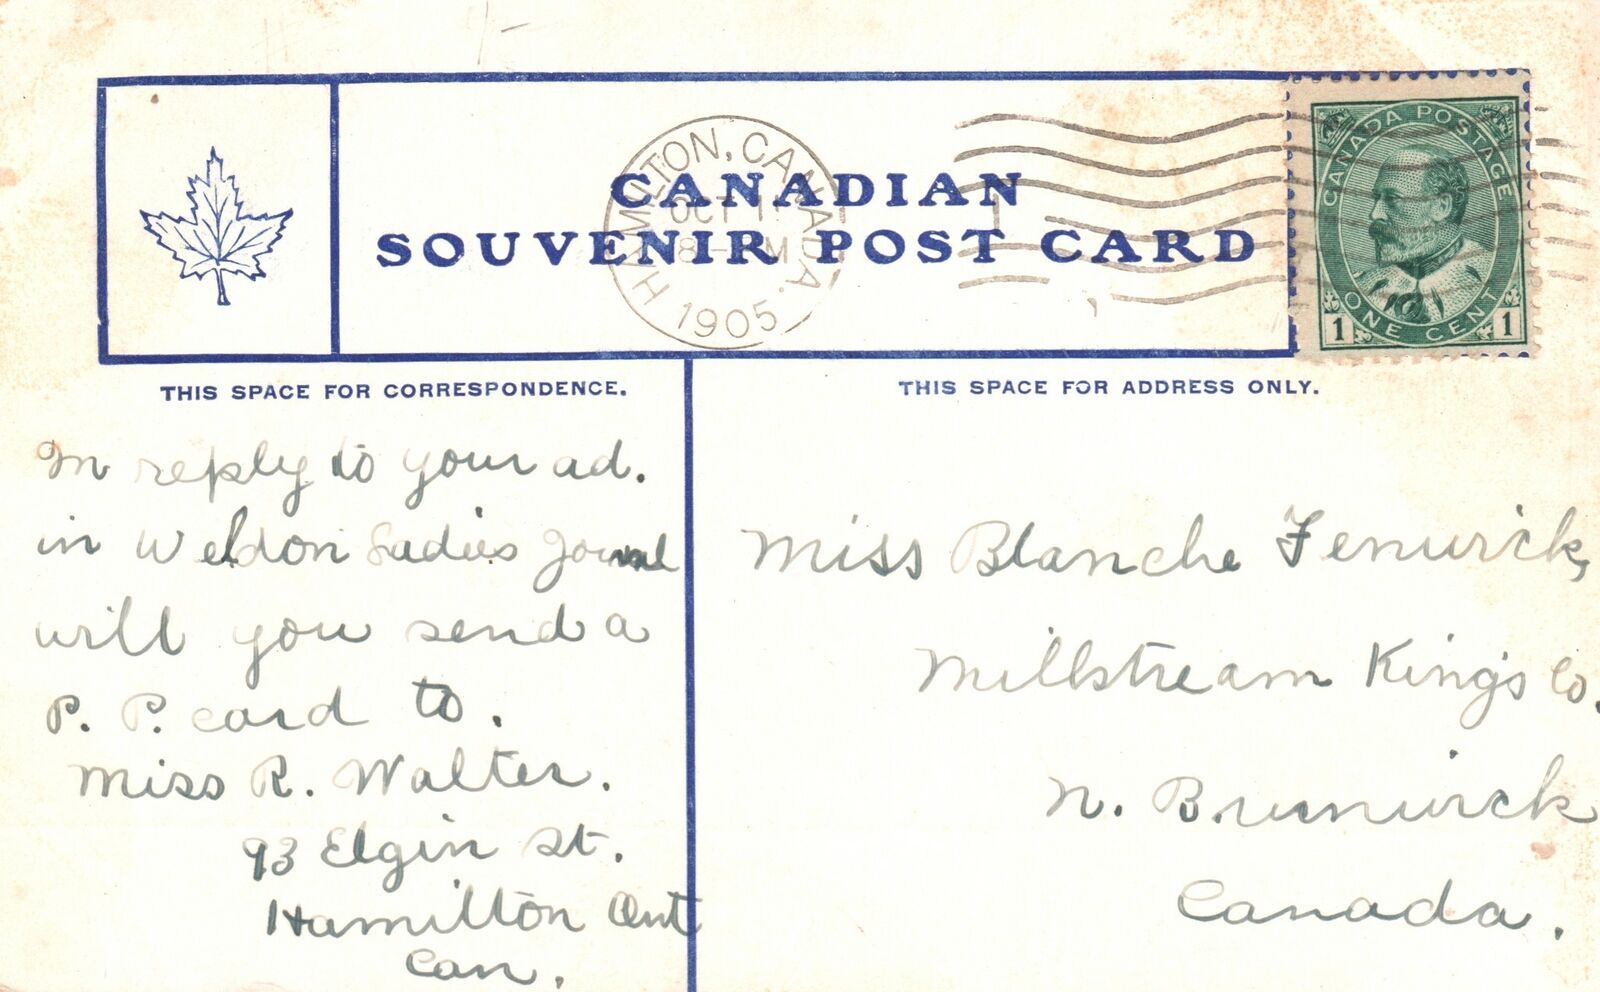 CANADIAN
SOUVENIR POST CARD
HAMILTON, CANADA.
OCT 1
8 – M
1905
CANADA POSTAGE
1 ONE CENT 1
THIS SPACE FOR CORRESPONDENCE.
In reply to your ad.
in Weldon Ladies Journal
will you send a
P. P. card to.
Miss R. Walter.
93 Elgin St.
Hamilton Ont
Can.
THIS SPACE FOR ADDRESS ONLY.
Miss Blanche Fenwick,
Millstream King's Co.
N. Brunwick
Canada.